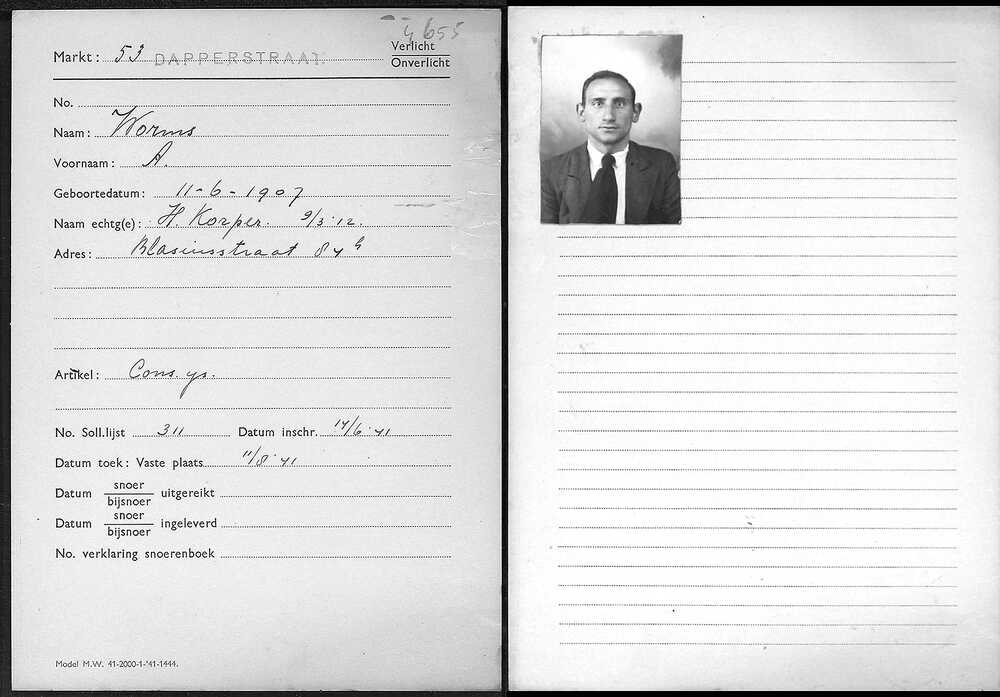 4655
Markt: 53 DAPPERSTRAAT.
Verlicht
Onverlicht
No.
Naam: Worms
Voornaam: A.
Geboortedatum: 11-6-1907
Naam echtg(e): H. Korper. 9/3 '12.
Adres: Blasiusstraat 84 h
Artikel: Cons. ys.
No. Soll.lijst 311 Datum inschr. 14/6 '41
Datum toek: Vaste plaats 11/8 '41
Datum snoer/bijsnoer uitgereikt
Datum snoer/bijsnoer ingeleverd
No. verklaring snoerenboek
Model M.W. 41-2000-1-'41-1444.